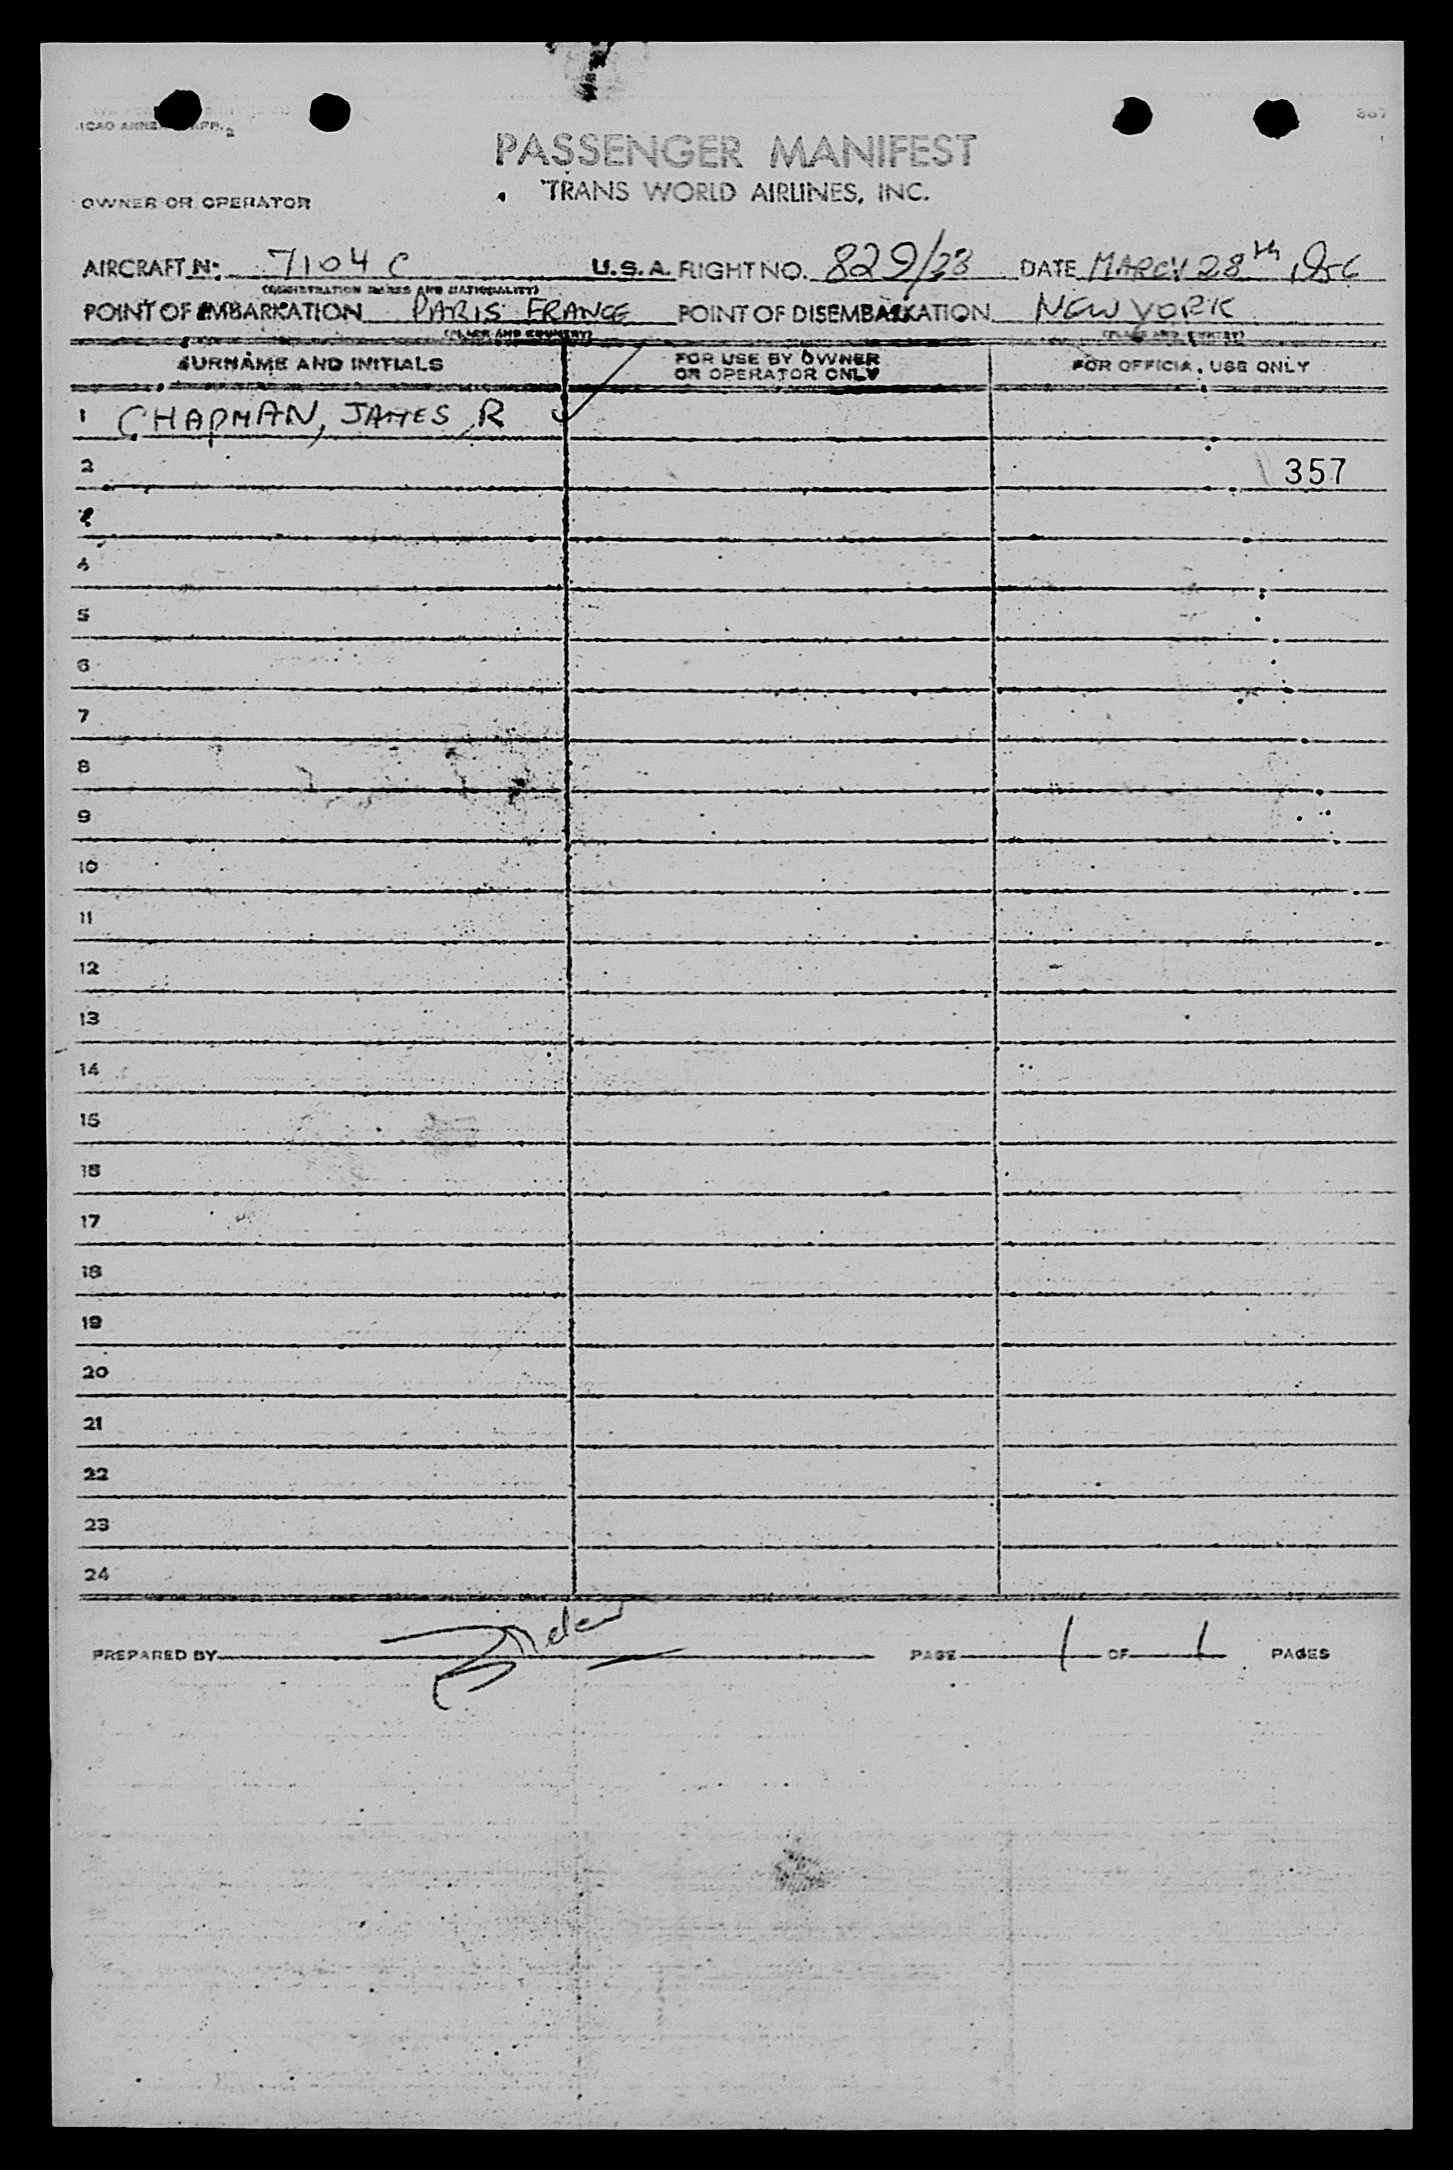 ICAO ANNEX
357
PASSENGER MANIFEST
OWNER OR OPERATOR TRANS WORLD AIRLINES, INC.
AIRCRAFT No 7104 C U.S.A. FLIGHT NO. 829/28 DATE MARCH 28th, 1956
(REGISTRATION MARKS AND NATIONALITY)
POINT OF EMBARKATION PARIS FRANCE POINT OF DISEMBARKATION NEW YORK
(PLACE AND COUNTRY) (PLACE AND COUNTRY)
SURNAME AND INITIALS FOR USE BY OWNER OR OPERATOR ONLY FOR OFFICIAL USE ONLY
1 CHAPMAN, JAMES R
2 357
3
4
5
6
7
8
9
10
11
12
13
14
15
16
17
18
19
20
21
22
23
24
PREPARED BY PAGE 1 OF 1 PAGES